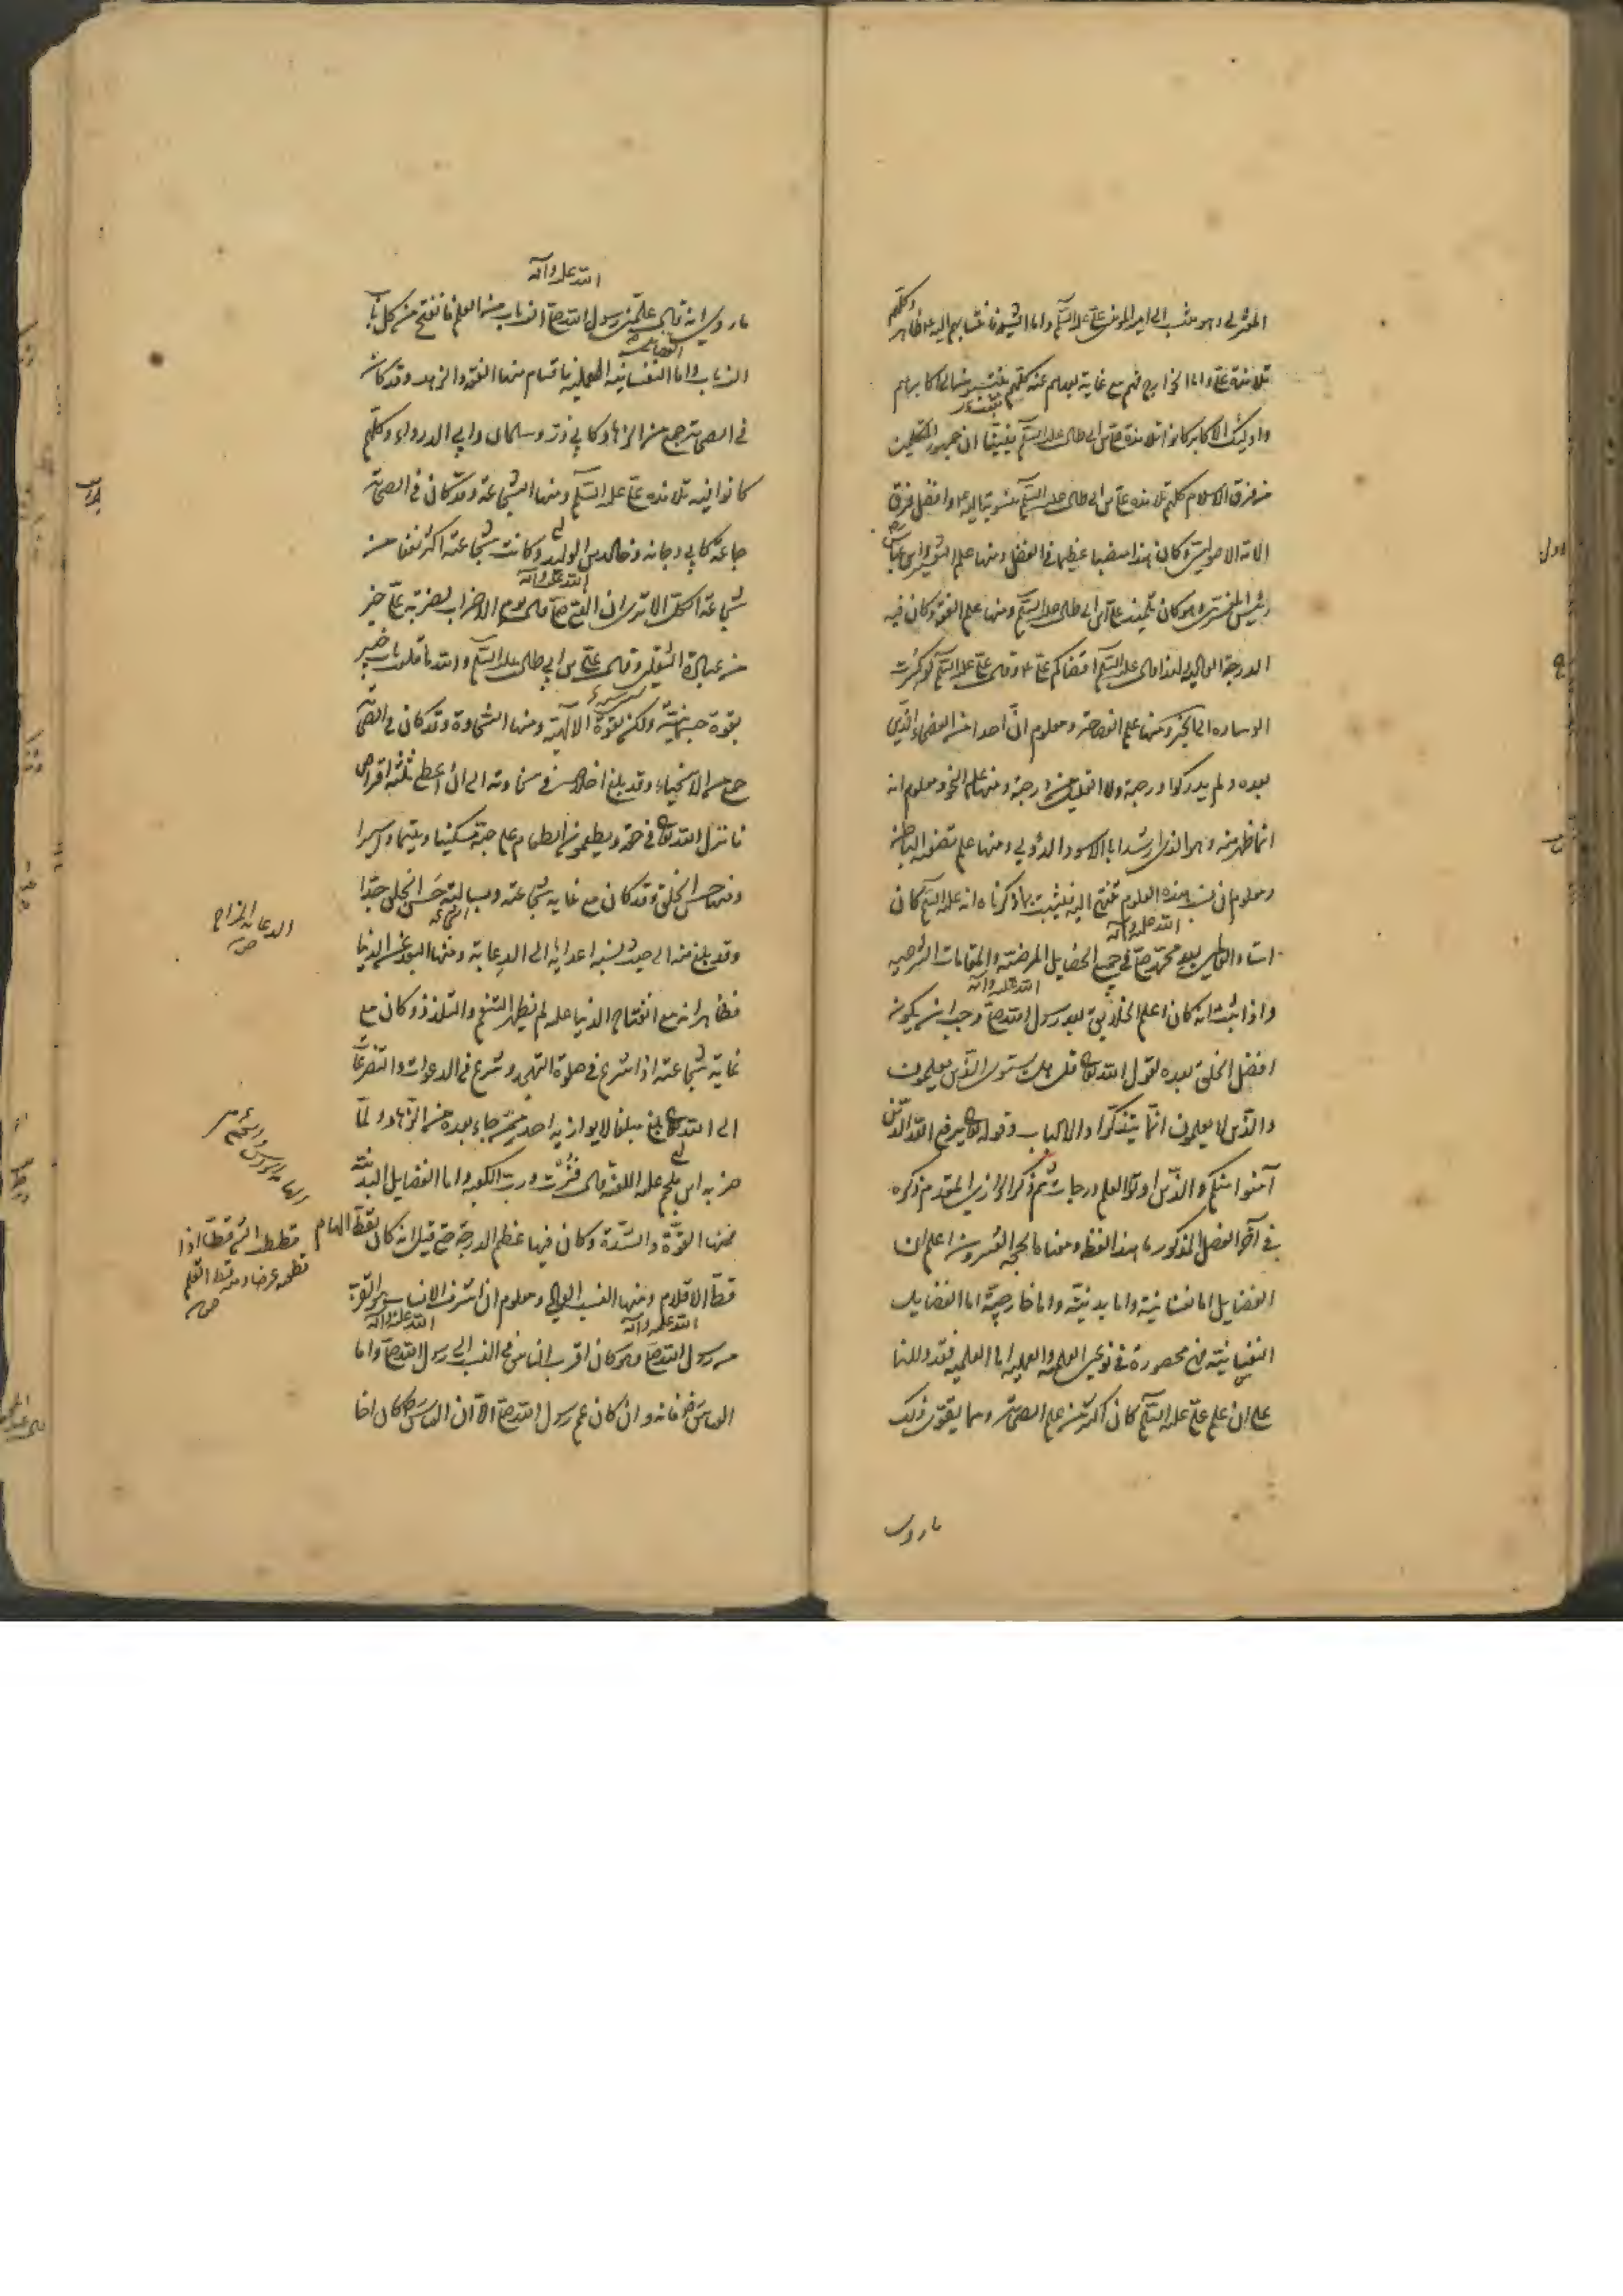 المعتزلي وهو منتسب الى امير المؤمنين علي عليه السلم واما الشيعة فانتسابهم اليه ظاهر وكلهم
تلامذة علي واما الخوارج فهم مع غاية بعدهم عنه كلهم منتسبون الى اكابرهم
واولئك الاكابر كانوا تلامذة علي بن ابي طالب عليه السلم فثبت ان جمهور المتكلمين
من فرق الاسلام كلهم تلامذة علي بن ابي طالب عليه السلم وافضل فرق
الامة الاصوليين وكان هذا منصبا عظيما في الفضل ومنها علم التفسير وابن عباس
رئيس المفسرين وهو كان تلميذ علي بن ابي طالب عليه السلم ومنها علم الفقه وكان فيه
الدرجة العاليه ولهذا قال عليه السلم اقضاكم علي وقال علي عليه السلم لو كسرت
الوساده الى الخبر ومنها علم الفصاحة ومعلوم ان احدا من الفصحاء الذين
بعده ولم يدركوا درجته ولا القليل من درجته ومنها علم النحو ومعلوم انه
انما ظهر منه وهو الذي ارشد ابا الاسود الدؤلي ومنها علم تصفية الباطن
ومعلوم ان نسب هذه العلوم تنتهي اليه فثبت بما ذكرناه انه عليه السلم كان
استاد العالمين بعد محمد صلى الله عليه وآله في جميع الخصايل المرضية والمقامات الشريفة
واذا ثبت انه كان اعلم الخلايق بعد رسول الله صلى الله عليه وآله وجب ان يكون
افضل الخلق بعده لقول الله تعالى قل هل يستوى الذين يعلمون
والذين لا يعلمون انما يتذكر اولوا الالباب وقوله تعالى يرفع الله الذين
آمنوا منكم والذين اوتوا العلم درجات ثم ذكر الرازي المقدم ذكره
في آخر الفصل المذكور ما هذا لفظه ومعناه الحجة العشرون اعلم ان
الفضايل اما نفسانية واما بدنية واما خارجية اما الفضايل
النفسانية فهي محصورة في نوعين العلمية والعملية اما العلمية فقد دللنا
على ان علم علي عليه السلم كان اكثر من علم الصحابة ومما يقوى ذلك
ما روى
ما روى انه قال علمني رسول الله صلى الله عليه وآله الف باب من العلم فانفتح من كل باب
الف باب واما الفضايل النفسانية العملية فاقسام منها العفة والزهد وقد كان
في الصحابة جمع من الزهاد كابي ذر وسلمان وابي الدرداء وكلهم
كانوا فيه تلامذه علي عليه السلم ومنها الشجاعة وقد كان في الصحابة
جماعة كابي دجانه وخالد بن الوليد وكانت شجاعته اكثر نفعا من
شجاعة الكل الا ترى ان النبي صلى الله عليه وآله قال يوم الاحزاب لضربة علي خير
من عبادة الثقلين وقال علي بن ابي طالب عليه السلم والله ما قلعت باب خيبر
بقوة جسمانية ولكن بقوة الالهية ومنها السخاوة وقد كان في الصحابة
جمع من الاسخياء وقد بلغ اخلاصه في سخاوته الى ان اعطى ثلثة اقراص
فانزل الله تعالى في حقه ويطعمون الطعام على حبه مسكينا ويتيما واسيرا
ومنها حسن الخلق وقد كان مع غاية شجاعته وبسالته حسن الخلق جدا
وقد بلغ فيه الى حيث نسبه اعدائه الى الدعابة ومنها البعد عن الدنيا
فظاهر انه مع انفتاح الدنيا عليه لم يظهر التنعم والتلذذ وكان مع
غاية شجاعته اذا شرع في صلوة التهجد وشرع في الدعوات والتضرعات
الى الله تعالى بلغ مبلغا لا يوازيه احد ممن جاء بعده من الزهاد ولما
ضربه ابن ملجم عليه اللعنه قال فزت ورب الكعبه واما الفضايل البدنية
فمنها القوة والشدة وكان فيها عظيم الدرجة حتى قيل انه كان يقط الهام
قط الاقلام ومنها النسب العالي ومعلوم ان اشرف الانساب هو القرب
من رسول الله صلى الله عليه وآله وهو كان اقرب الناس في النسب الى رسول الله صلى الله عليه وآله واما
العباس فانه وان كان عم رسول الله صلى الا ان العباس كان اخا
الدعابة المزاح
قططت الشيء قطا اذا
قطعته عرضا ومنه قط القلم